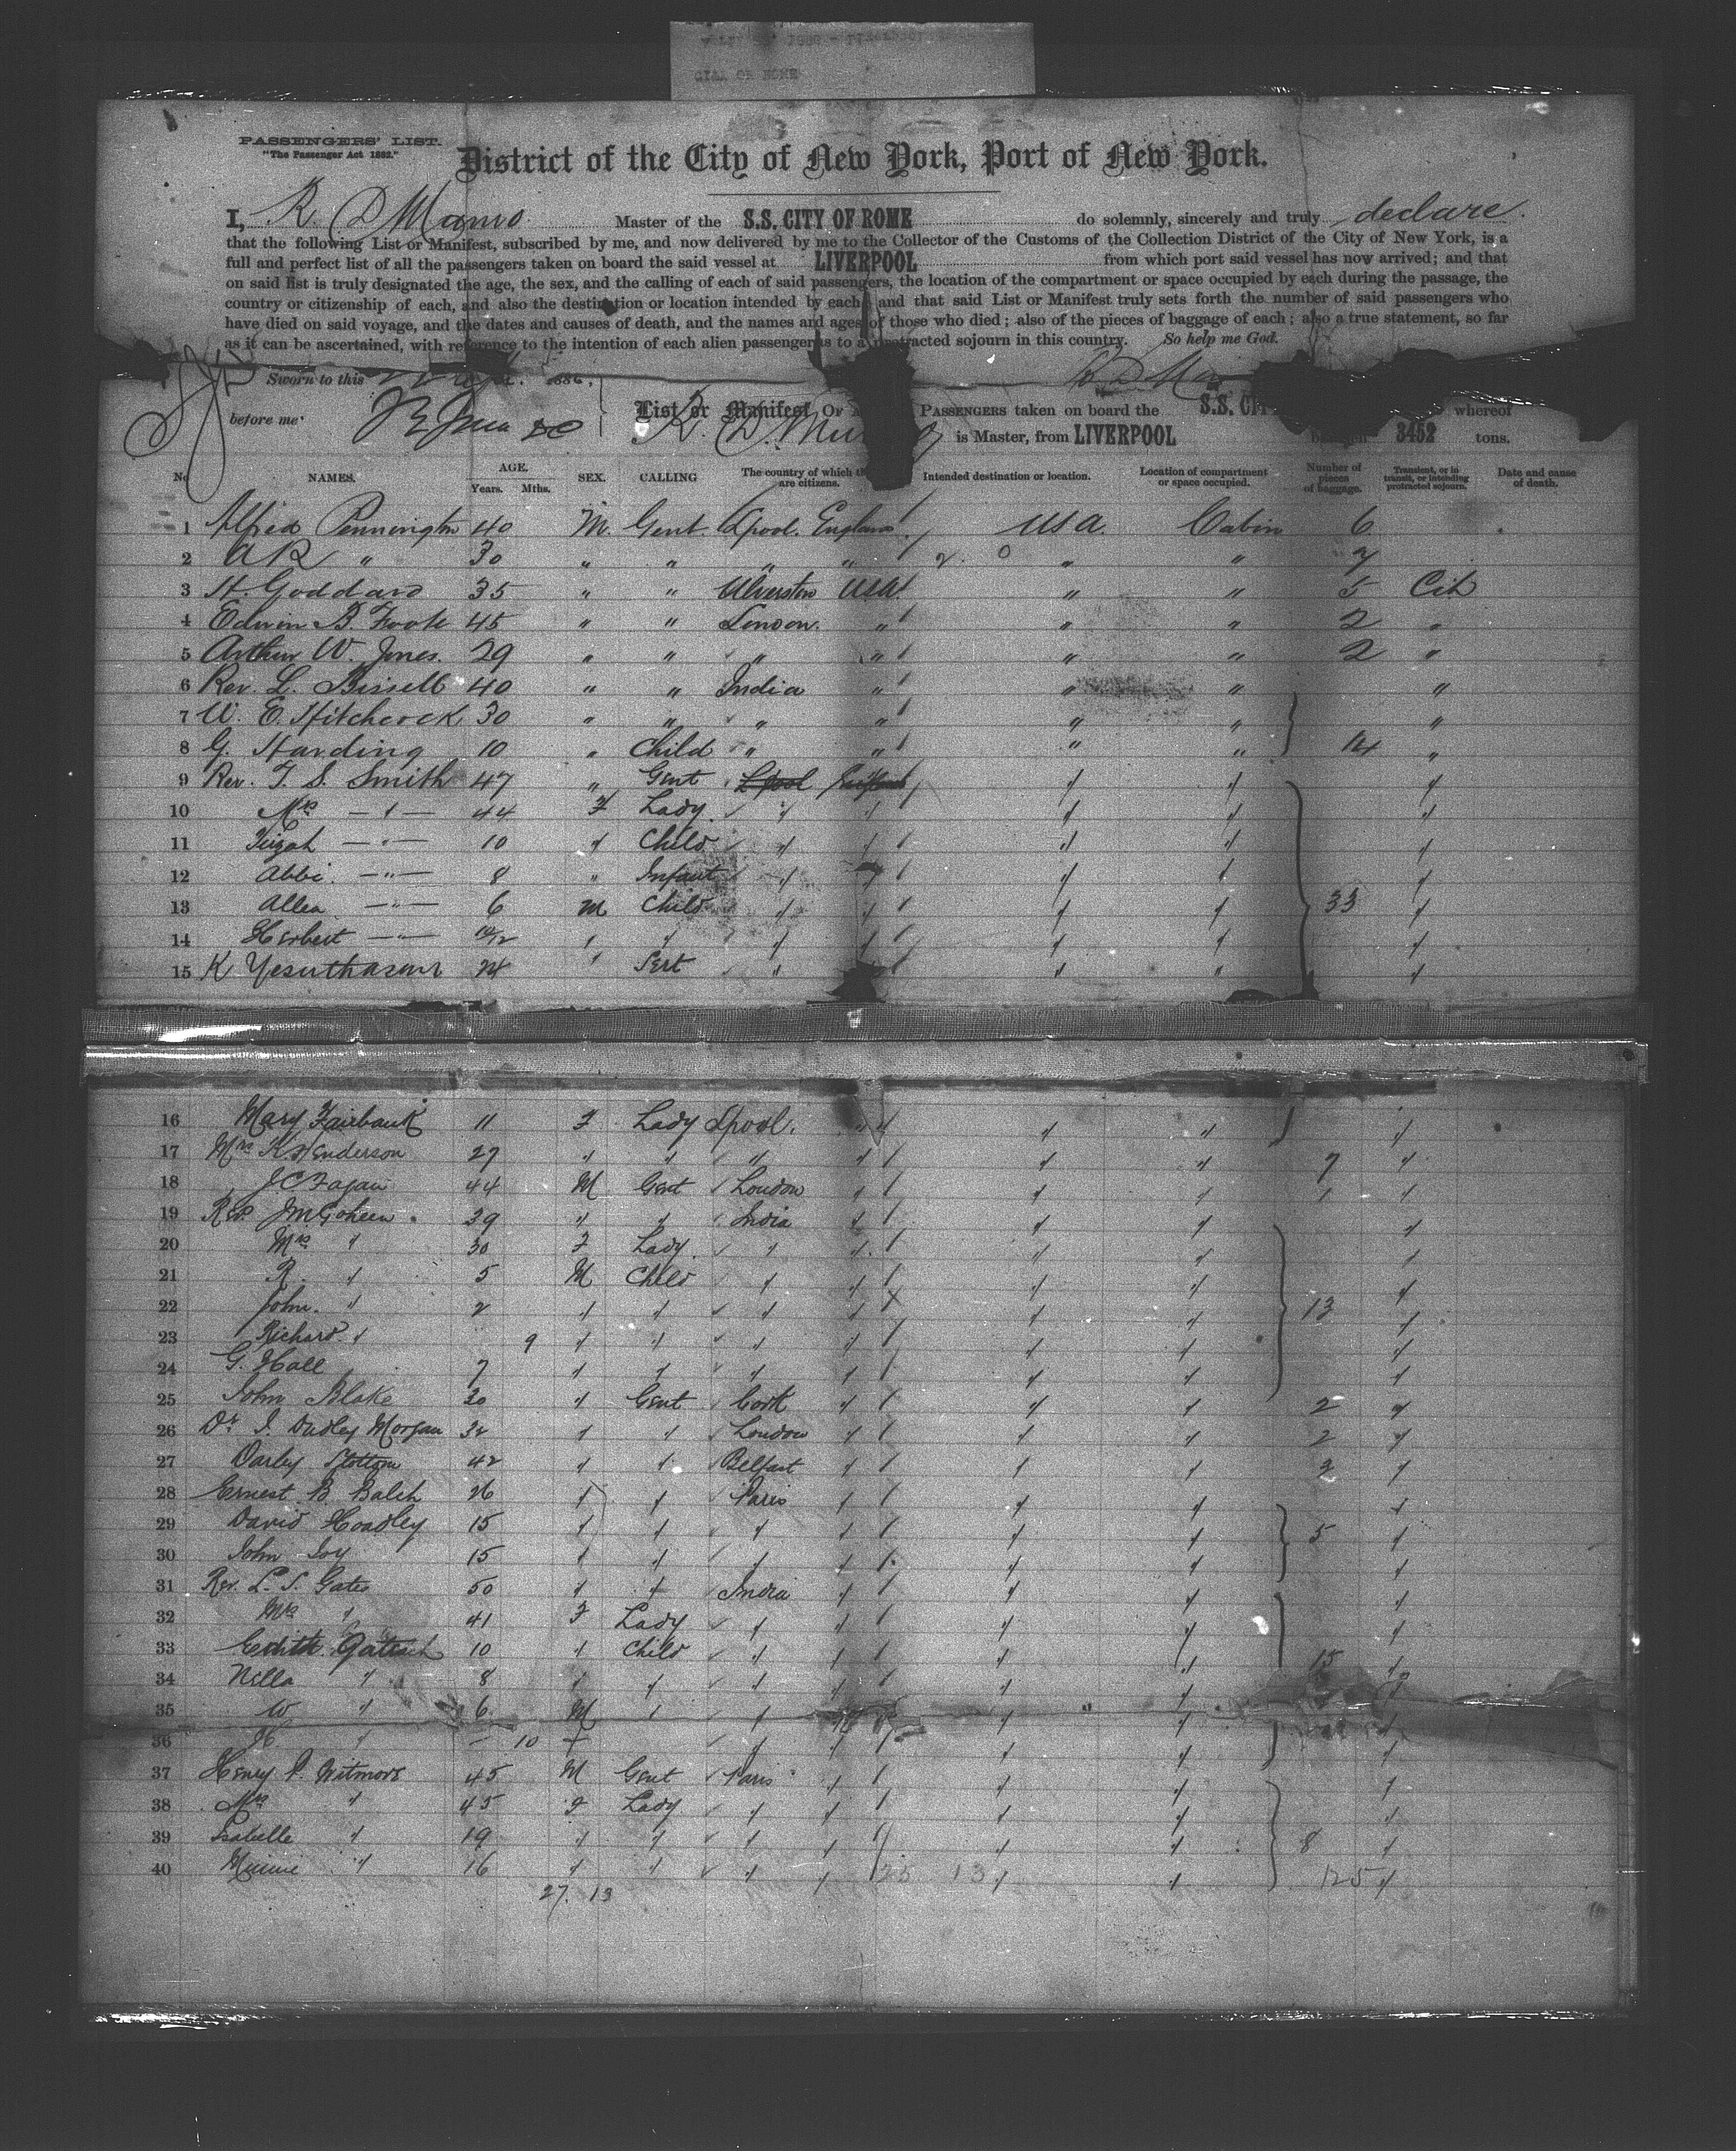 CITY OF ROME
PASSENGERS' LIST.
"The Passenger Act 1882."
District of the City of New York, Port of New York.
I, R. D Munro Master of the S.S. CITY OF ROME do solemnly, sincerely and truly declare.
that the following List or Manifest, subscribed by me, and now delivered by me to the Collector of the Customs of the Collection District of the City of New York, is a
full and perfect list of all the passengers taken on board the said vessel at LIVERPOOL from which port said vessel has now arrived; and that
on said list is truly designated the age, the sex, and the calling of each of said passengers, the location of the compartment or space occupied by each during the passage, the
country or citizenship of each, and also the destination or location intended by each and that said List or Manifest truly sets forth the number of said passengers who
have died on said voyage, and the dates and causes of death, and the names and ages of those who died; also of the pieces of baggage of each; also a true statement, so far
as it can be ascertained, with reference to the intention of each alien passenger as to a protracted sojourn in this country. So help me God.
Sworn to this 1886,
before me List or Manifest OF PASSENGERS taken on board the S.S. CITY whereof
R. D. Munro is Master, from LIVERPOOL 3452 tons.
No NAMES. AGE. Years. Mths. SEX. CALLING The country of which they are citizens. Intended destination or location. Location of compartment or space occupied. Number of pieces of baggage. Transient, or in transit, or intending protracted sojourn. Date and cause of death.
1 Alfred Pennington 40 M. Gent. Lpool. England USA. Cabin 6
2 A R " 30 " " " " " "
3 H. Goddard 35 " " Ulverston USA " " 5 Cit
4 Edwin B. Foote 45 " " London. " " " 2 "
5 Arthur W. Jones. 29 " " " " " " 2 "
6 Rev. L. Bissell 40 " " India " " " "
7 W. E. Hitchcock 30 " " " " " " "
8 G. Harding 10 " Child " " " " 14 "
9 Rev. T. S. Smith 47 " Gent Lpool " " "
10 Mrs " 44 F Lady " " " " "
11 " 10 " Child " " " " "
12 Abbi. " 8 " Infant " " " " "
13 Allen " 6 M Child " " " " 33 "
14 Herbert " 10/12 " " " " " " "
15 K Yesuthasun 24 " Sert " " " "
16 Mary Fairbank 11 F Lady Lpool. " " " "
17 Mrs K Henderson 27 " " " " " " 7 "
18 J. C Fagan 44 M Gent London " " " 1 "
19 Rev. J M Goheen 39 " " India " " " "
20 Mrs " 30 F Lady " " " " "
21 R. " 5 M Child " " " " "
22 John. " 2 " " " " " " 13 "
23 Richard " 9 " " " " " " "
24 G. Hall 7 " " " " " " "
25 John Blake 30 " Gent Cork " " " 2 "
26 Dr J. Dudley Morgan 32 " " London " " " 2 "
27 Darby 42 " " Belfast " " " 2 "
28 Ernest B Balch 26 " " Paris " " " "
29 David Hoadley 15 " " " " " " 5 "
30 John Ivy 15 " " " " " " "
31 Rev. L. S. Gates 50 " " India " " " "
32 Mrs " 41 F Lady " " " " "
33 Edith 10 " Child " " " " 15 "
34 Nella " 8 " " " " " " "
35 W " 6 M " " " " "
36 H. " - 10 " " " " "
37 Henry P. Witmore 45 M Gent Paris " " " "
38 Mrs " 45 F Lady " " " " "
39 Isabelle " 19 " " " " " " 8 "
40 Minnie " 16 " " " " 23 13 " " 125 "
27. 13